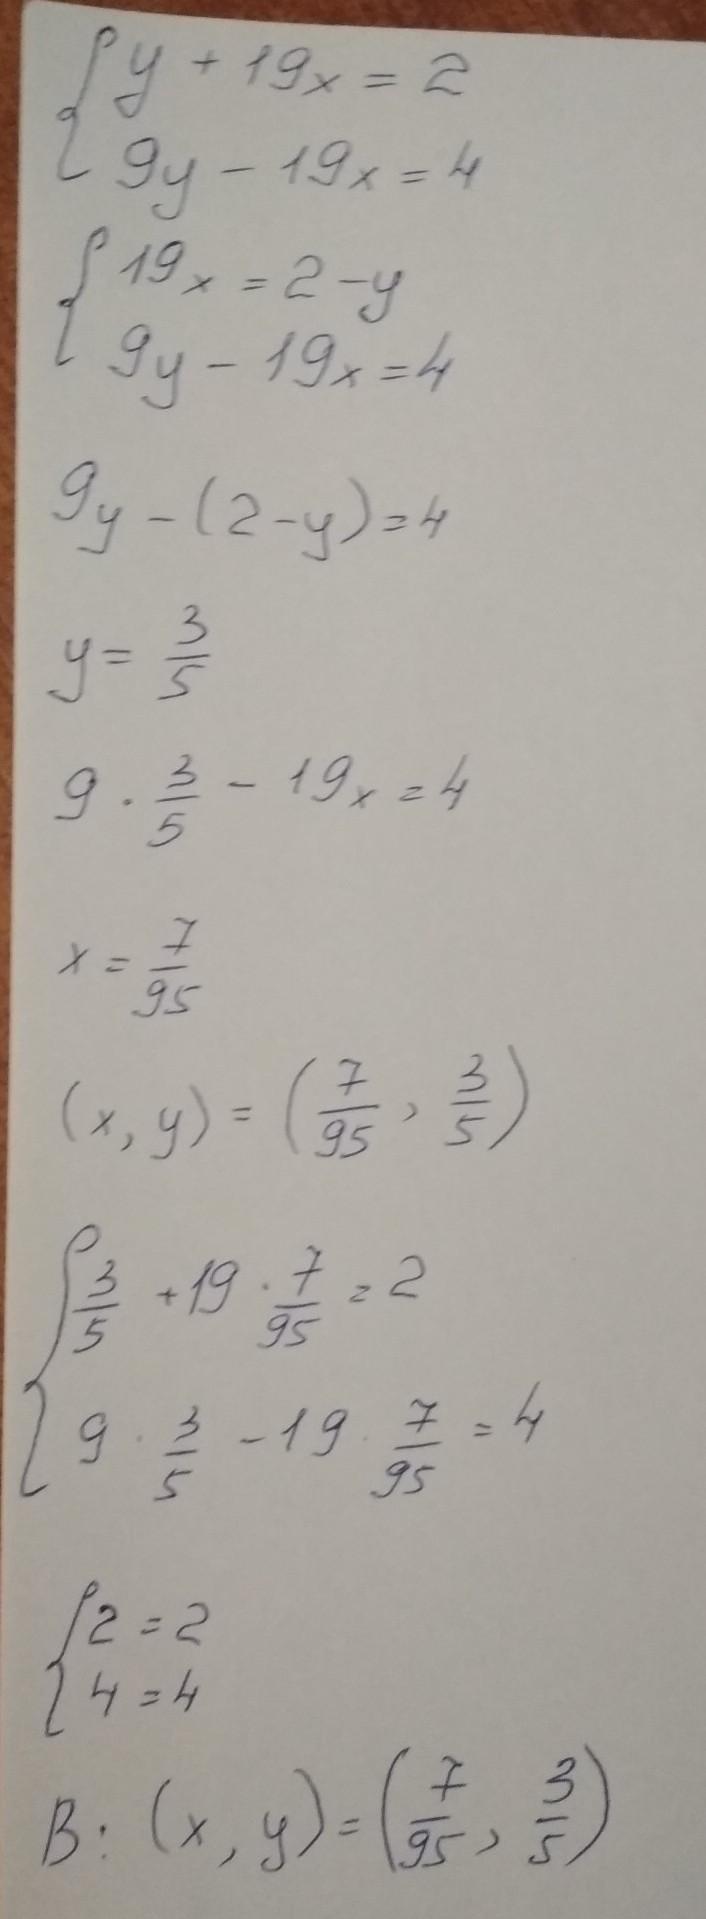 { y + 19x = 2
9y - 19x = 4
{ 19x = 2 - y
9y - 19x = 4
9y - (2 - y) = 4
y = 3/5
9 · 3/5 - 19x = 4
x = 7/95
(x, y) = (7/95, 3/5)
{ 3/5 + 19 · 7/95 = 2
9 · 3/5 - 19 · 7/95 = 4
{ 2 = 2
4 = 4
В: (x, y) = (7/95, 3/5)